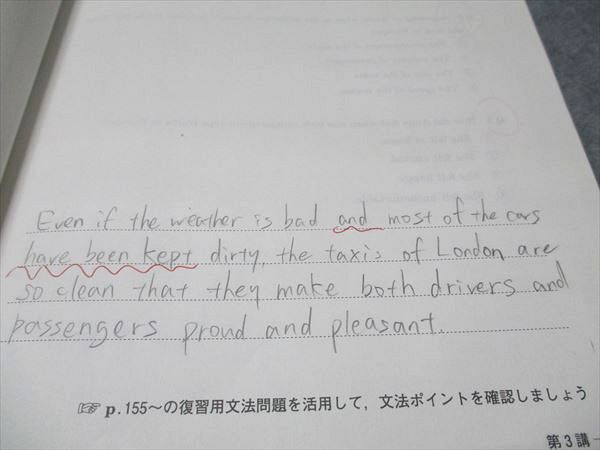 Even if the weather is bad and most of the cars
have been kept dirty, the taxis of London are
so clean that they make both drivers and
passengers proud and pleasant.
☞ p.155〜の復習用文法問題を活用して，文法ポイントを確認しましょう
第3講